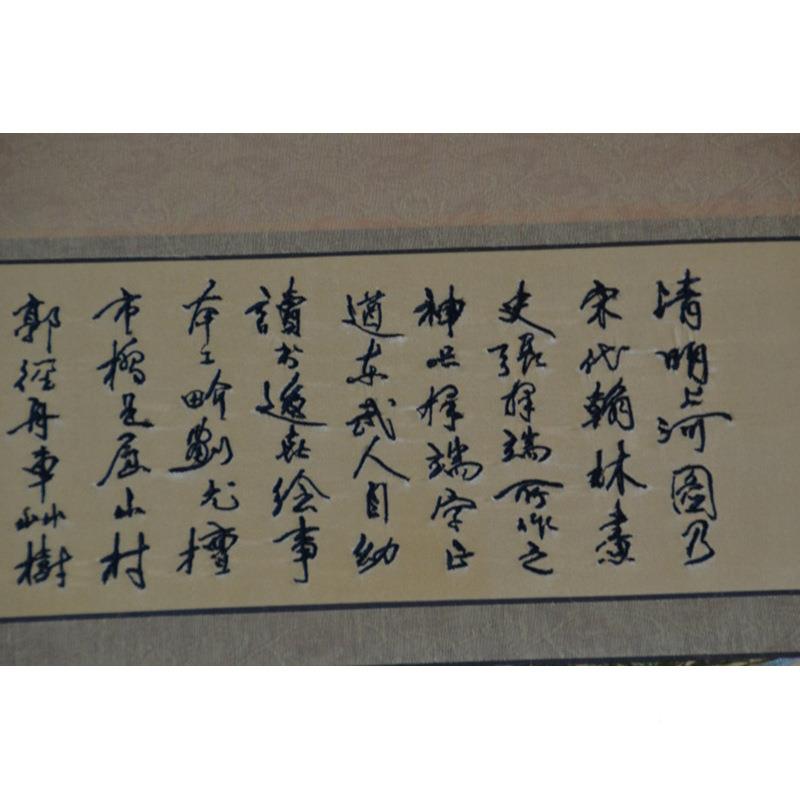 清明上河圖乃
宋代翰林畫
史張擇端所作之
神品擇端字正
道東武人自幼
讀書遊嘉繪事
本工界劃尤擅
市橋屋小村
郭徑舟車山樹